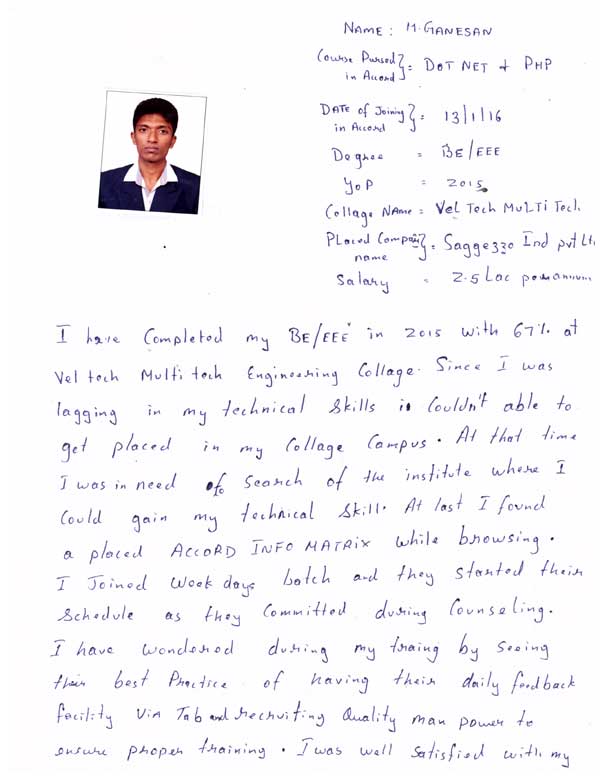 NAME: M. GANESAN
Course Pursed in Accord } = DOT NET & PHP
DATE of Joining in Accord } = 13/1/16
Degree = BE/EEE
YOP = 2015
Collage NAME = Vel Tech MULTi Tech
PLaced Company name } = Saggezzo Ind pvt Lt
Salary = 2.5 Lac per annum
I have Completed my BE/EEE in 2015 with 67% at
Vel tech Multi tech Engineering Collage. Since I was
lagging in my technical Skills i Couldn't able to
get placed in my Collage Campus. At that time
I was in need of to Search of the institute where I
Could gain my technical Skill. At last I found
a placed ACCORD INFO MATRIX while browsing.
I Joined Week days batch and they started their
Schedule as they Committed during Counseling.
I have wondered during my traing by seeing
their best Practice of having their daily feedback
facility ViA Tab and recruiting Quality man power to
ensure proper training. I was well Satisfied with my